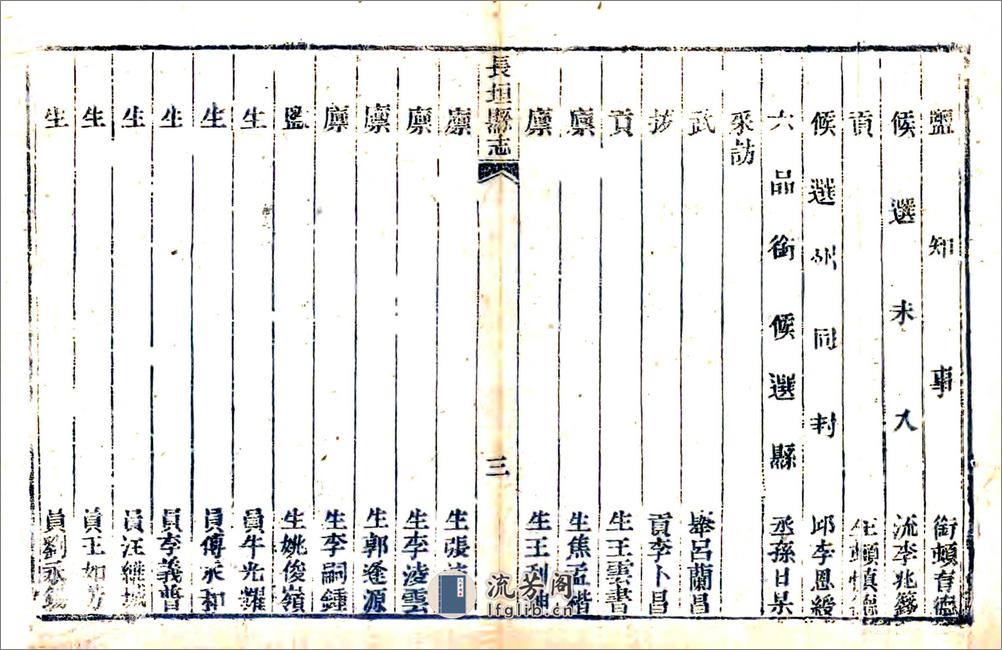 鹽知事銜頓育德
候選未入流李兆
貢生頓慎德
候選州同封邱李恩綬
六品銜候選縣丞孫日杲
采訪
武舉呂蘭昌
拔貢李卜昌
貢生王雲書
廪生焦孟
廪生王利
長垣縣志
三
廪生張
廪生李淩雲
廪生郭逢源
廪生李嗣鍾
監生姚俊嶺
生員牛光耀
生員傅永和
生員李義普
生員汪維城
生員王如芳
生員劉丞
流芳阁
lfglib.cn